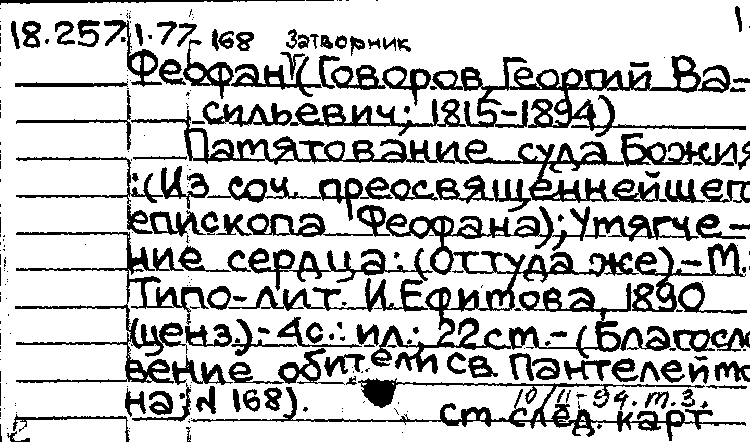 18.257.1.77-168 Затворник 1
Феофан (Говоров, Георгий Ва-
сильевич; 1815-1894)
Памятование суда Божия
:(Из соч. преосвященнейшего
епископа Феофана); Умягче-
ние сердца: (Оттуда же).-М.:
Типо-лит. И.Ефимова, 1890
(ценз.).- 4с.: ил.; 22см.- (Благосло
вение обители св. Пантелеймо
на; № 168).
10/II-94. т.3.
см след. карт